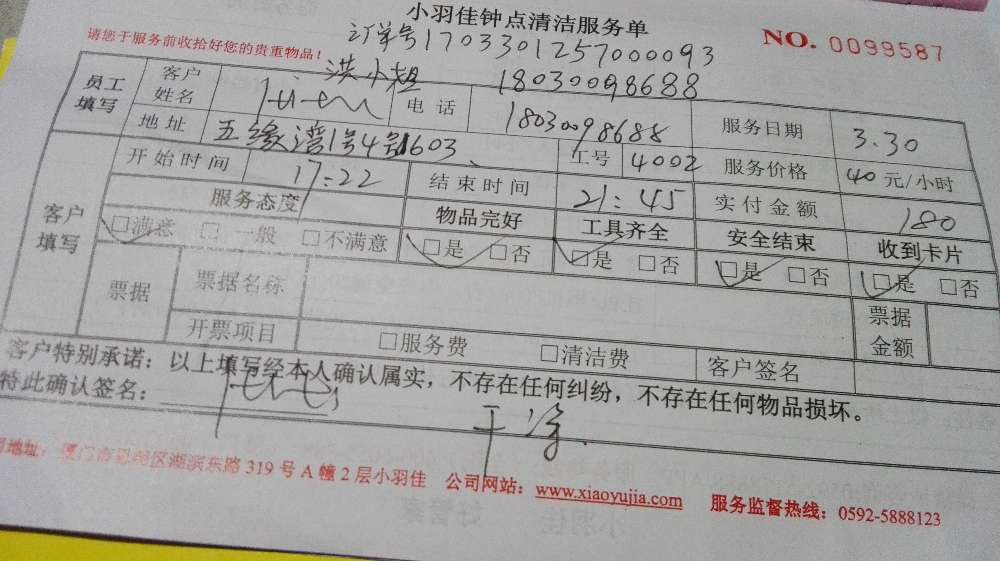 小羽佳钟点清洁服务单
请您于服务前收拾好您的贵重物品!
订单号1703301257000093
NO. 0099587
员工填写 客户姓名 洪小姐 电话 18030098688 18030098688 服务日期 3.30
地址 五缘湾1号4号1603 工号 4002 服务价格 40元/小时
开始时间 17:22 结束时间 21:45 实付金额 180
客户填写 服务态度 物品完好 工具齐全 安全结束 收到卡片
□满意 □一般 □不满意 □是 □否 □是 □否 □是 □否 □是 □否
票据 票据名称 票据金额
开票项目 □服务费 □清洁费 客户签名
客户特别承诺:以上填写经本人确认属实,不存在任何纠纷,不存在任何物品损坏。
特此确认签名:
干净.
司地址:厦门市思明区湖滨东路319号A幢2层小羽佳 公司网站:www.xiaoyujia.com 服务监督热线:0592-5888123